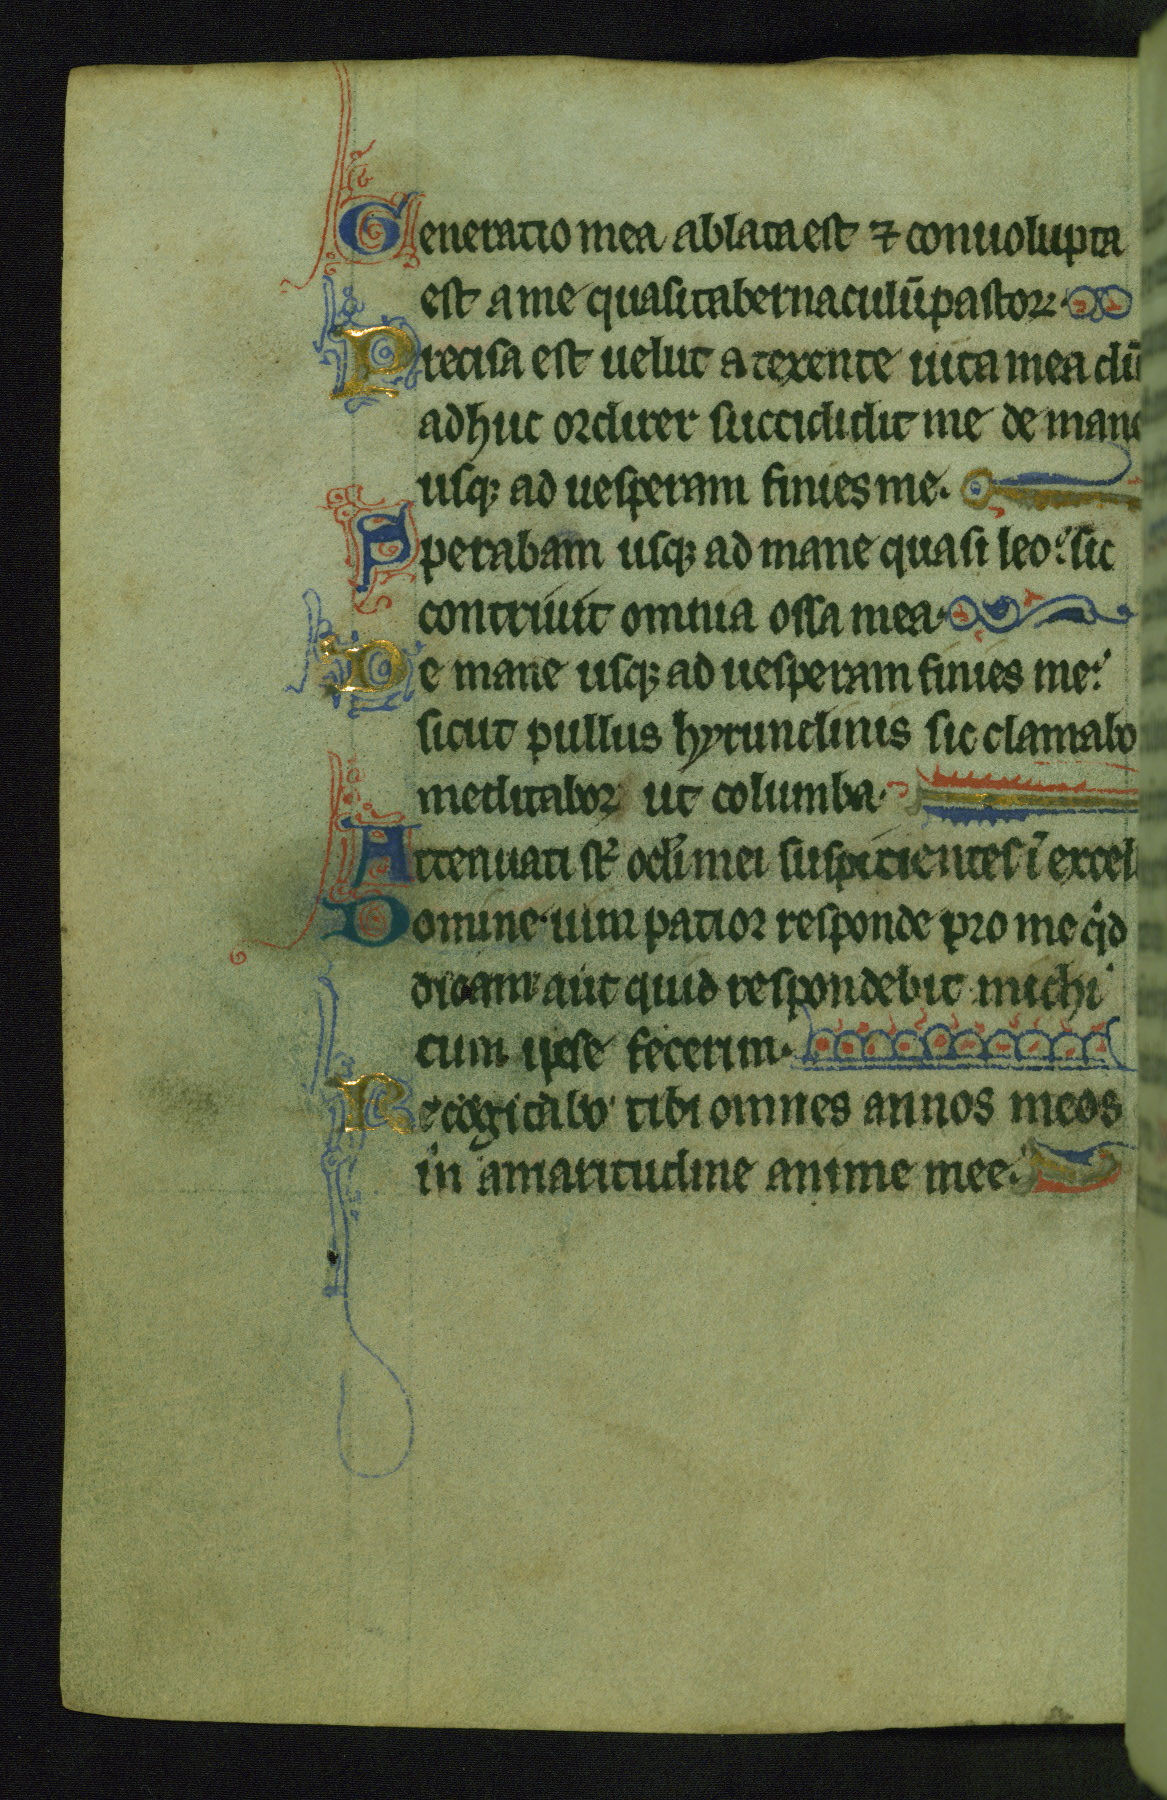 Generatio mea ablata est ⁊ conuolupta
est a me quasi tabernaculū pastorꝝ.
Precisa est uelut a texente uita mea dū
adhuc ordirer succididit me de mane
usqꝫ ad uesperam finies me.
Sperabam usqꝫ ad mane quasi leo: sic
contriuit omnia ossa mea.
De mane usqꝫ ad uesperam finies me:
sicut pullus hyrundinis sic clamabo
meditabor ut columba.
Attenuati st̄ oculi mei suspicientes ī excel
Domine uim patior responde pro me qͥd
dicam aut quid respondebit michi
cum ipse fecerim.
Recogitabo tibi omnes annos meos
in amaritudine anime mee.